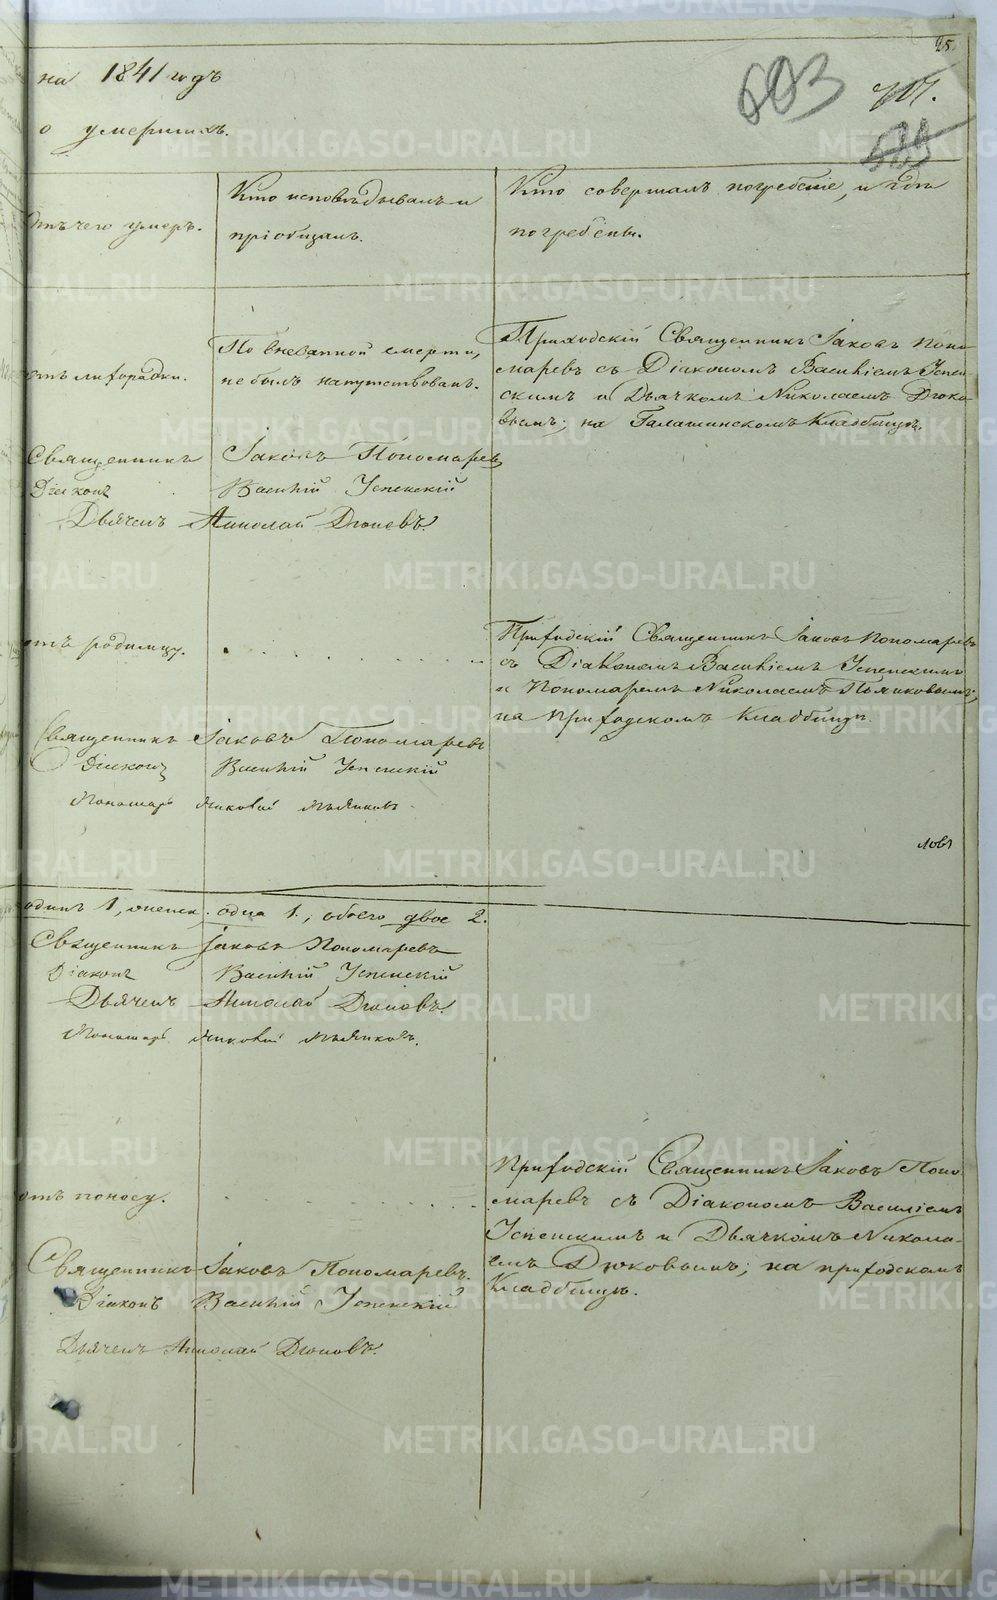 25.
на 1841 годъ
603
707.
о умершихъ.
Отъ чего умеръ.
Кто исповѣдывалъ и
пріобщалъ.
Кто совершалъ погребеніе, и гдѣ
погребены.
отъ лихорадки.
По внезапной смерти,
небылъ напутствованъ.
Приходскій Священникъ Іаковъ Поно
маревъ съ Діакономъ Василіемъ Успен
скимъ и Дьячкомъ Николаемъ Дюко
вымъ; на Галашинскомъ Кладбищѣ.
Священникъ Іаковъ Пономаревъ
Діаконъ Василій Успенскій
Дьячекъ Николай Дюковъ.
отъ родимцу.
Приходскій Священникъ Іаковъ Пономаревъ
съ Діакономъ Василіемъ Успенскимъ
и Пономаремъ Николаемъ
на приходскомъ Кладбищѣ.
Священникъ Іаковъ Пономаревъ
Діаконъ Василій Успенскій
Пономарь
ловъ
одинъ 1, женск. одна 1., обоего двое 2.
Священникъ Іаковъ Пономаревъ
Діаконъ Василій Успенскій
Дьячекъ Николай Дюковъ.
Пономарь
отъ поносу.
Приходскій Священникъ Іаковъ Поно
маревъ съ Діакономъ Василіемъ
Успенскимъ и Дьячкомъ Никола-
емъ Дюковымъ; на приходскомъ
Кладбищѣ.
Священникъ Іаковъ Пономаревъ.
Діаконъ Василій Успенскій
Дьячекъ Николай Дюковъ.
METRIKI.GASO-URAL.RU